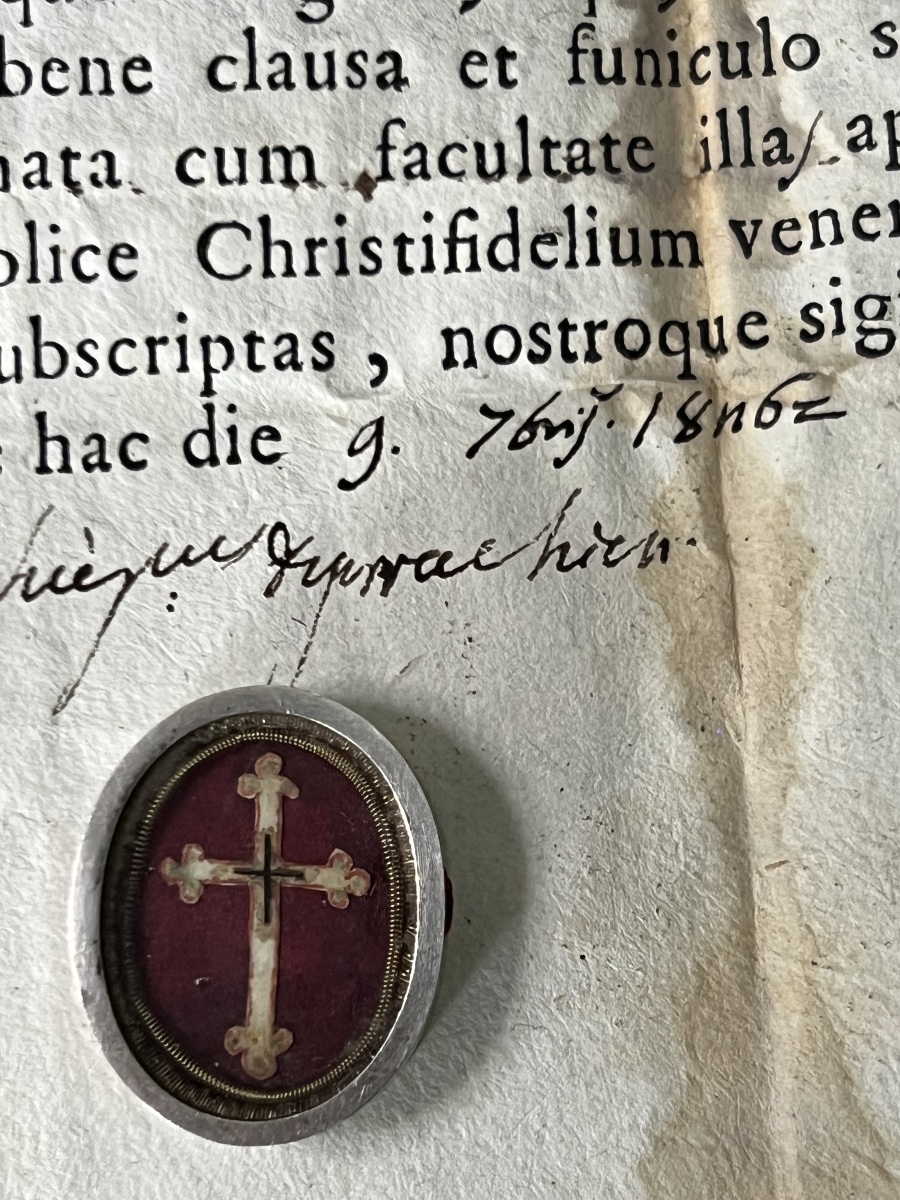 bene clausa et funiculo s
nata cum facultate illas ap
olice Christifidelium vener
ubscriptas, nostroque sigi
hac die 9. 7bris.